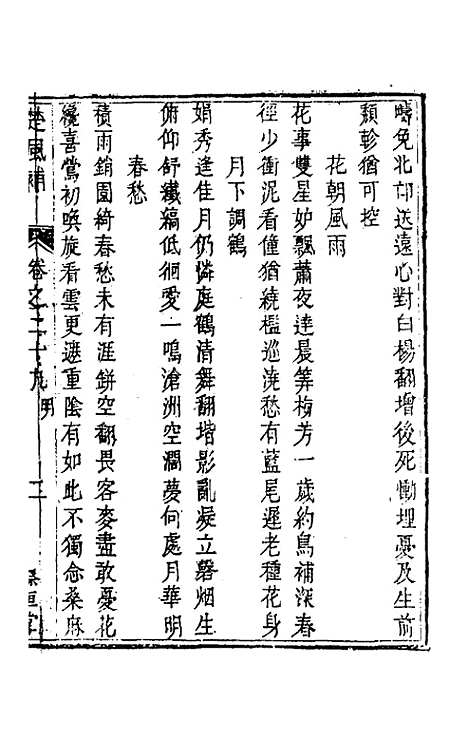 疇免北邙送遠心對白楊翻增後死慟埋憂及生前
顥軫猶可控
花朝風雨
花事雙星妒飄蕭夜達晨筭梅芳一歲約鳥補深春
徑少衝泥看僮猶繞檻巡澆愁有藍尾遲老種花身
月下調鶴
娟秀逢佳月仍憐庭鶴清舞翻堦影亂凝立磬烟生
俯仰舒纖縞低徊愛一鳴滄洲空濶夢何處月華明
春愁
積雨銷園綺春愁未有涯缾空翻畏客麥盡敢憂花
纔喜鶯初喚旋看雲更遮重陰有如此不獨念桑麻
楚風補 卷之二十九 明 三